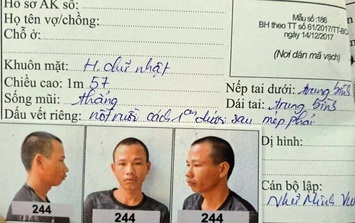 Hồ sơ AK số:
Họ tên vợ/chồng:
Chỗ ở:
Mẫu số:186
BH theo TT số 61/2017/TT-BC
ngày 14/12/2017
(Nơi dán mã vạch)
Khuôn mặt: H. chữ nhật
Chiều cao: 1m 57
Sống mũi: thẳng
Nếp tai dưới: trung bình
Dái tai: trung bình
Dấu vết riêng: nốt ruồi cách 1cm dưới sau mép phải
Dị hình:
Cán bộ lập:
Như Minh
244
244
244